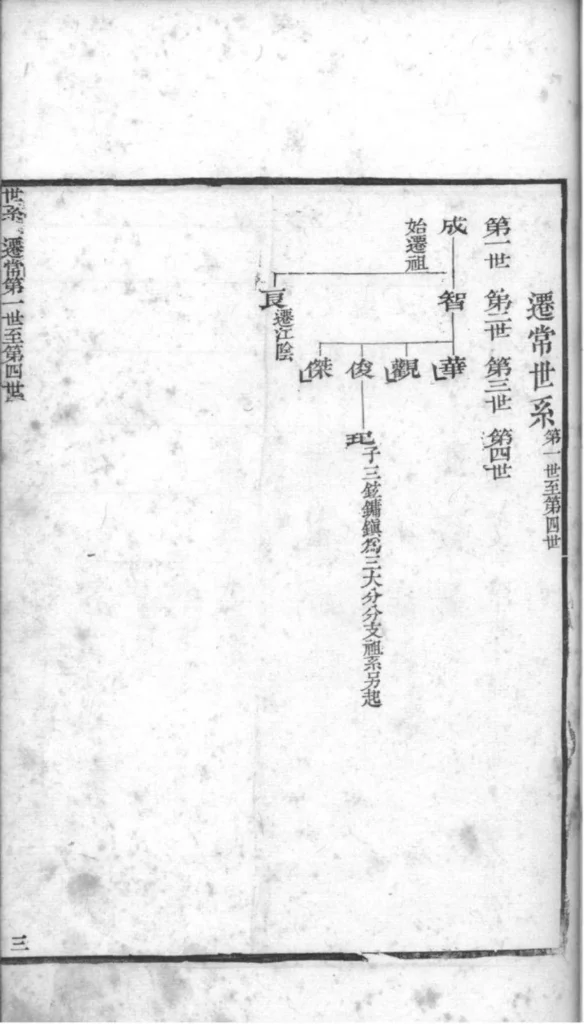 遷常世系第一世至第四世
第一世 第二世 第三世 第四世
成 智 華
始遷祖
觀
俊 玘
子三鉉鏞鎮為三大分分支祖系另起
傑
良
遷江陰
世系 遷常第一世至第四世
三